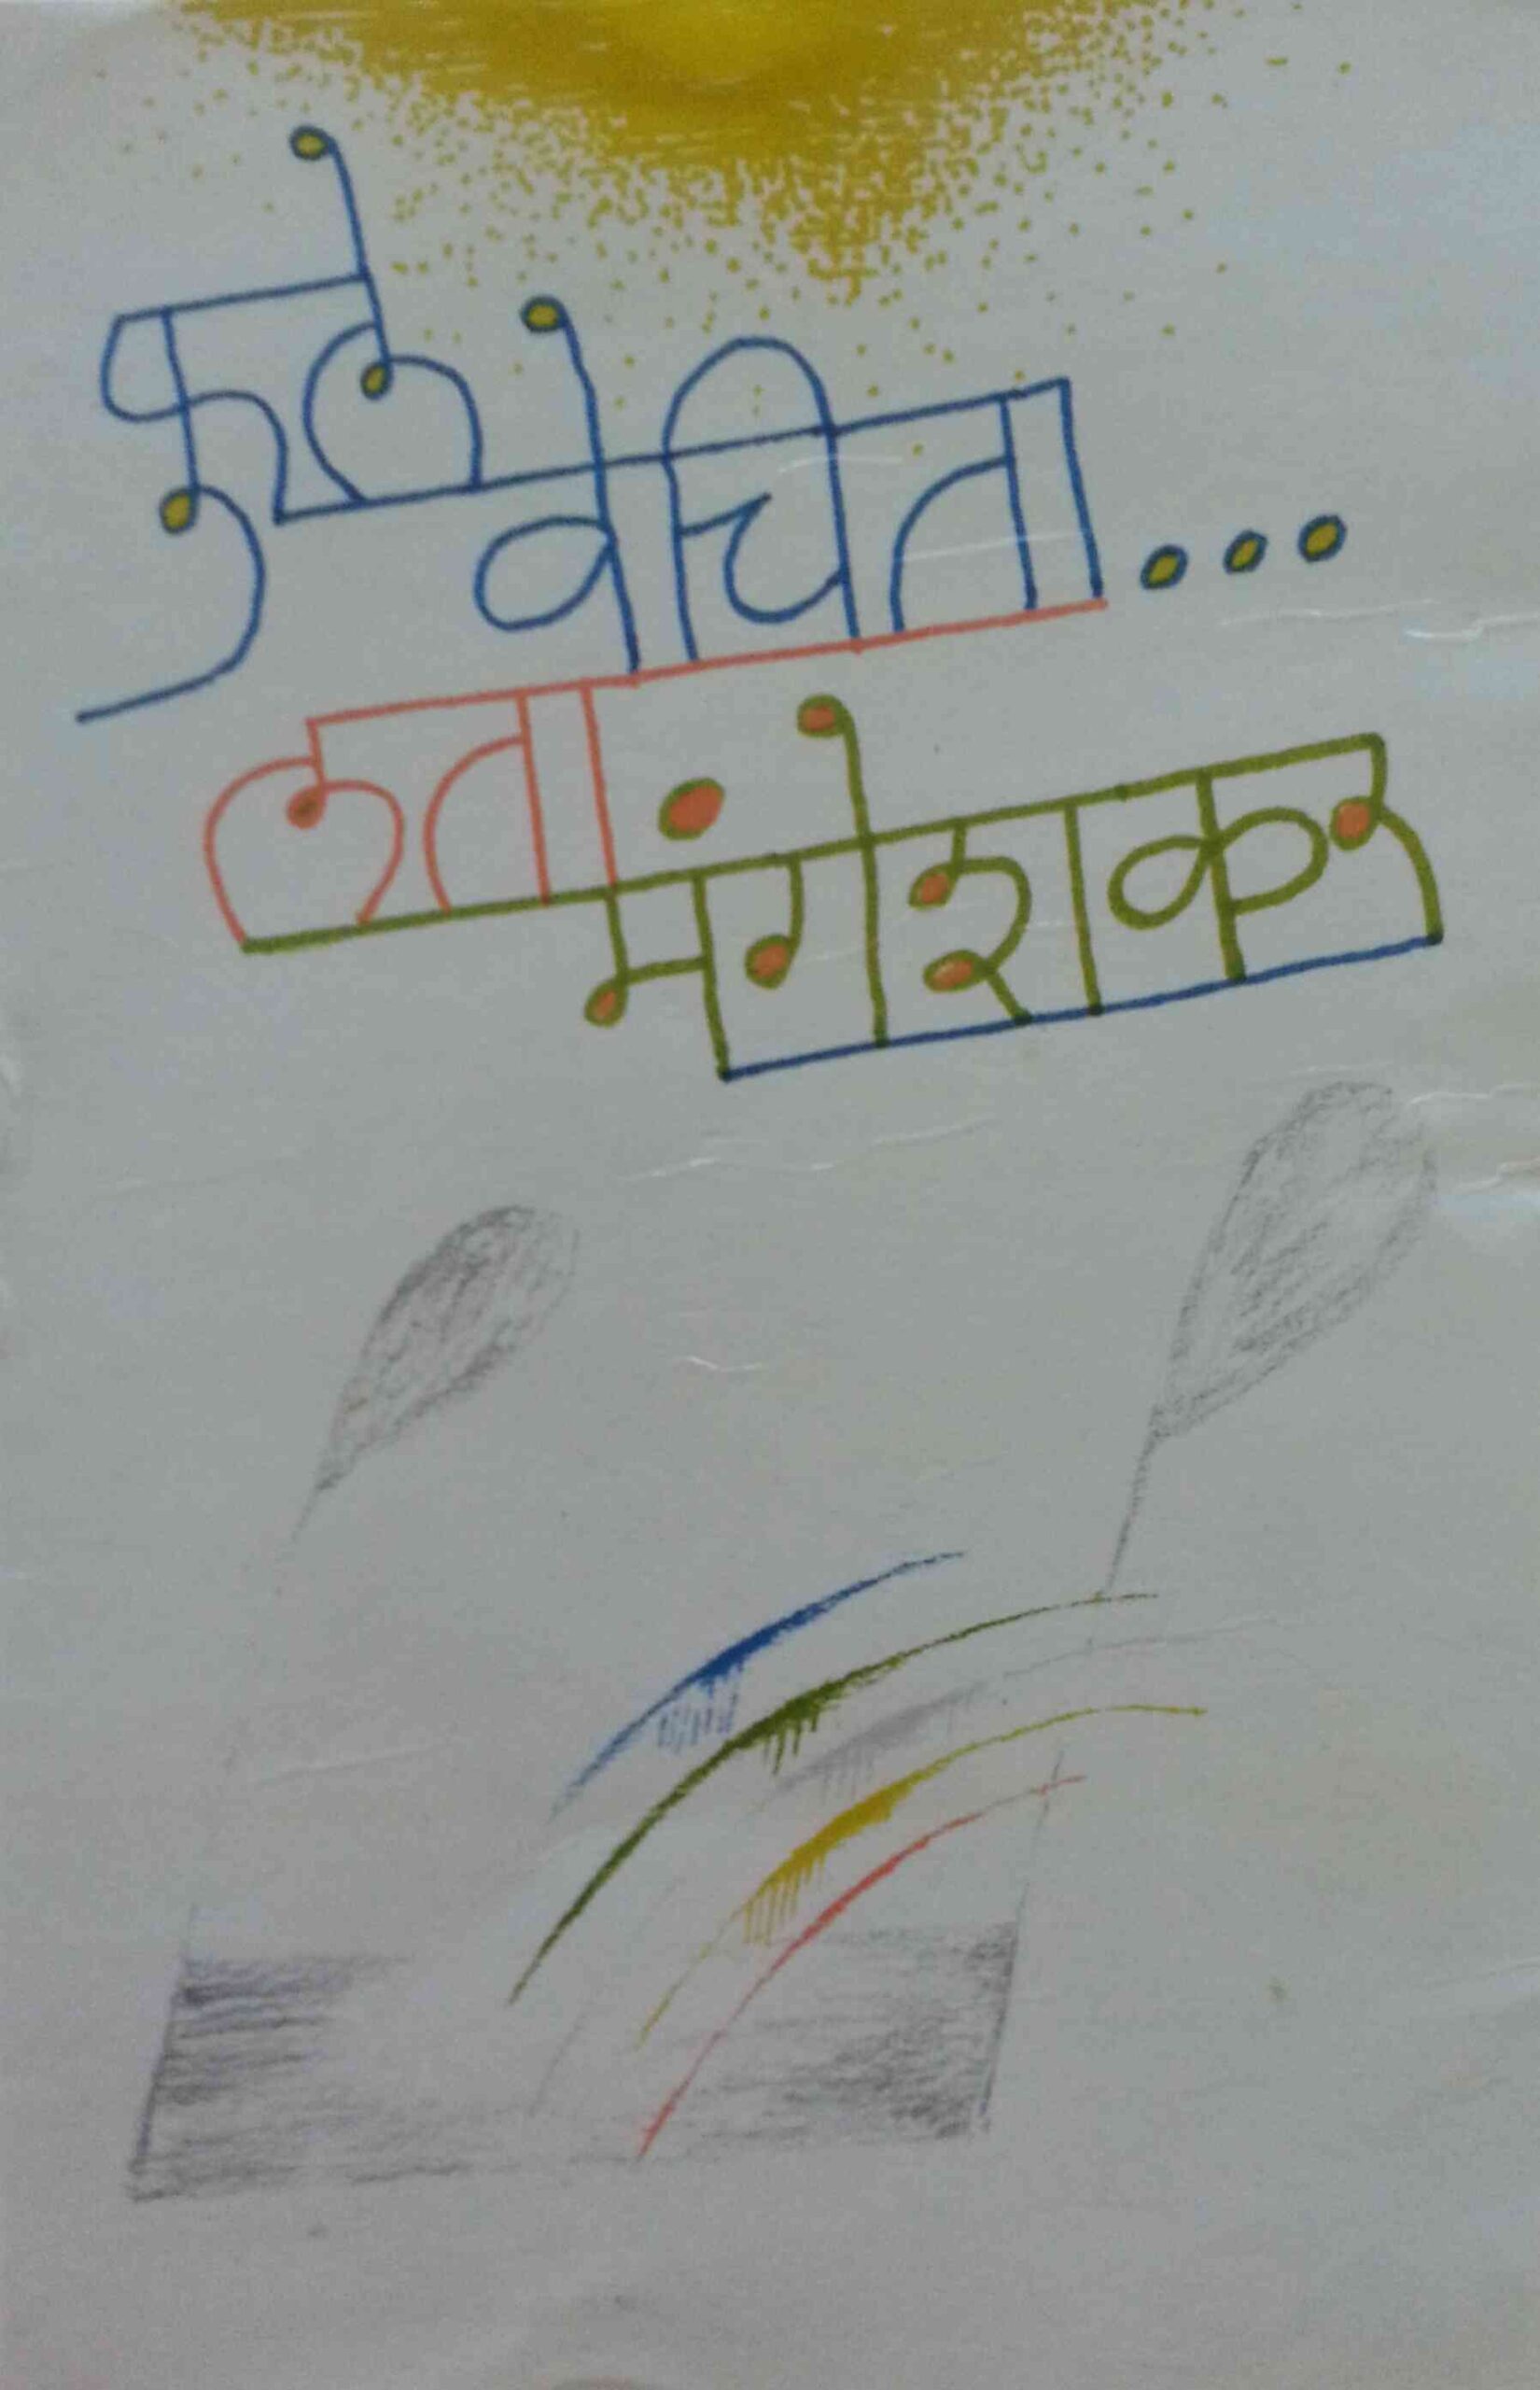 फुले
वेचिता...
लता
मंगेशकर